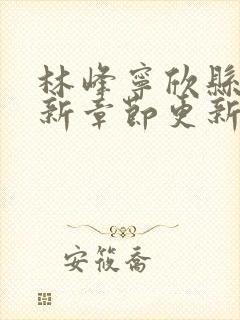 林峰寧欣縣
新章節更新
安筱喬